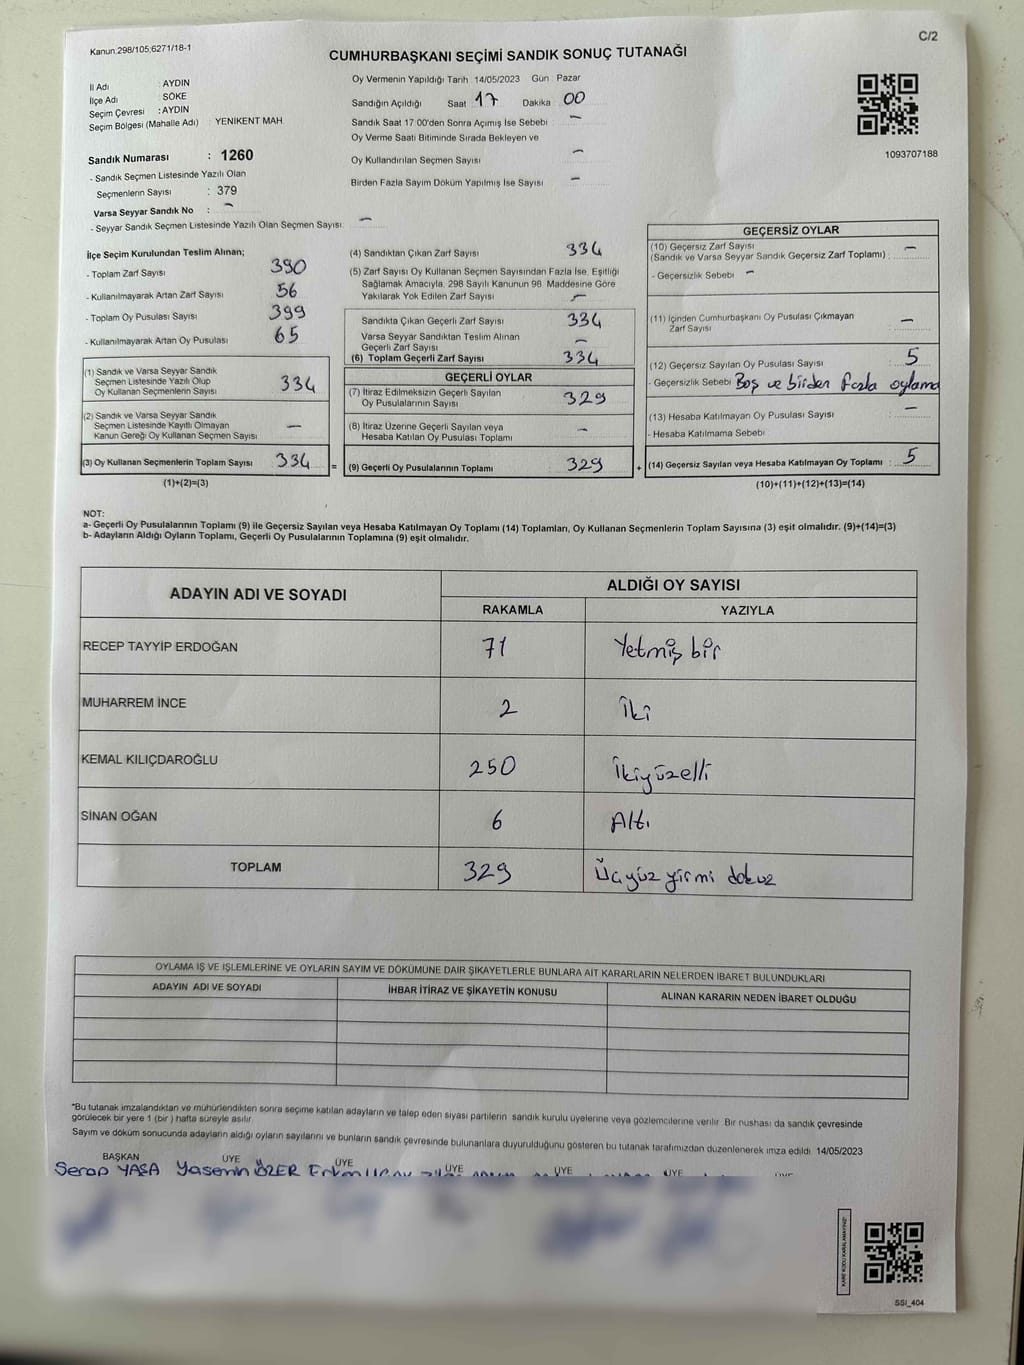 Kanun:298/105;6271/18-1
C/2
CUMHURBAŞKANI SEÇİMİ SANDIK SONUÇ TUTANAĞI
İl Adı : AYDIN
İlçe Adı : SÖKE
Seçim Çevresi : AYDIN
Seçim Bölgesi (Mahalle Adı) : YENİKENT MAH.
Sandık Numarası : 1260
- Sandık Seçmen Listesinde Yazılı Olan
Seçmenlerin Sayısı : 379
Varsa Seyyar Sandık No : -
- Seyyar Sandık Seçmen Listesinde Yazılı Olan Seçmen Sayısı: -
Oy Vermenin Yapıldığı Tarih 14/05/2023 Gün Pazar
Sandığın Açıldığı Saat 17 Dakika 00
Sandık Saat 17:00'den Sonra Açımış İse Sebebi -
Oy Verme Saati Bitiminde Sırada Bekleyen ve
Oy Kullandırılan Seçmen Sayısı -
Birden Fazla Sayım Döküm Yapılmış İse Sayısı -
1093707188
İlçe Seçim Kurulundan Teslim Alınan;
- Toplam Zarf Sayısı 390
- Kullanılmayarak Artan Zarf Sayısı 56
- Toplam Oy Pusulası Sayısı 399
- Kullanılmayarak Artan Oy Pusulası 65
(1) Sandık ve Varsa Seyyar Sandık
Seçmen Listesinde Yazılı Olup
Oy Kullanan Seçmenlerin Sayısı 334
(2) Sandık ve Varsa Seyyar Sandık
Seçmen Listesinde Kayıtlı Olmayan
Kanun Gereği Oy Kullanan Seçmen Sayısı -
(3) Oy Kullanan Seçmenlerin Toplam Sayısı 334
(1)+(2)=(3)
(4) Sandıktan Çıkan Zarf Sayısı 334
(5) Zarf Sayısı Oy Kullanan Seçmen Sayısından Fazla İse, Eşitliği
Sağlamak Amacıyla, 298 Sayılı Kanunun 98. Maddesine Göre
Yakılarak Yok Edilen Zarf Sayısı -
Sandıkta Çıkan Geçerli Zarf Sayısı 334
Varsa Seyyar Sandıktan Teslim Alınan
Geçerli Zarf Sayısı -
(6) Toplam Geçerli Zarf Sayısı 334
GEÇERLİ OYLAR
(7) İtiraz Edilmeksizin Geçerli Sayılan
Oy Pusulalarının Sayısı 329
(8) İtiraz Üzerine Geçerli Sayılan veya
Hesaba Katılan Oy Pusulası Toplamı -
= (9) Geçerli Oy Pusulalarının Toplamı 329 +
GEÇERSİZ OYLAR
(10) Geçersiz Zarf Sayısı
(Sandık ve Varsa Seyyar Sandık Geçersiz Zarf Toplamı) : -
- Geçersizlik Sebebi -
(11) İçinden Cumhurbaşkanı Oy Pusulası Çıkmayan
Zarf Sayısı : -
(12) Geçersiz Sayılan Oy Pusulası Sayısı : 5
- Geçersizlik Sebebi Boş ve birden fazla oylama
(13) Hesaba Katılmayan Oy Pusulası Sayısı : -
- Hesaba Katılmama Sebebi
(14) Geçersiz Sayılan veya Hesaba Katılmayan Oy Toplamı : 5
(10)+(11)+(12)+(13)=(14)
NOT:
a- Geçerli Oy Pusulalarının Toplamı (9) ile Geçersiz Sayılan veya Hesaba Katılmayan Oy Toplamı (14) Toplamları, Oy Kullanan Seçmenlerin Toplam Sayısına (3) eşit olmalıdır. (9)+(14)=(3)
b- Adayların Aldığı Oyların Toplamı, Geçerli Oy Pusulalarının Toplamına (9) eşit olmalıdır.
ADAYIN ADI VE SOYADI ALDIĞI OY SAYISI
RAKAMLA YAZIYLA
RECEP TAYYİP ERDOĞAN 71 Yetmiş bir
MUHARREM İNCE 2 İki
KEMAL KILIÇDAROĞLU 250 İkiyüzelli
SİNAN OĞAN 6 Altı
TOPLAM 329 Üçyüz yirmi dokuz
OYLAMA İŞ VE İŞLEMLERİNE VE OYLARIN SAYIM VE DÖKÜMÜNE DAİR ŞİKAYETLERLE BUNLARA AİT KARARLARIN NELERDEN İBARET BULUNDUKLARI
ADAYIN ADI VE SOYADI İHBAR İTİRAZ VE ŞİKAYETİN KONUSU ALINAN KARARIN NEDEN İBARET OLDUĞU
*Bu tutanak imzalandıktan ve mühürlendikten sonra seçime katılan adayların ve talep eden siyasi partilerin sandık kurulu üyelerine veya gözlemcilerine verilir. Bir nushası da sandık çevresinde
görülecek bir yere 1 (bir) hafta süreyle asılır.
Sayım ve döküm sonucunda adayların aldığı oyların sayılarını ve bunların sandık çevresinde bulunanlara duyurulduğunu gösteren bu tutanak tarafımızdan düzenlenerek imza edildi. 14/05/2023
BAŞKAN ÜYE ÜYE ÜYE ÜYE ÜYE ÜYE
Serap YAŞA Yasemin ÖZER
KARE KODU KARALAMAYINIZ!
SSİ_404